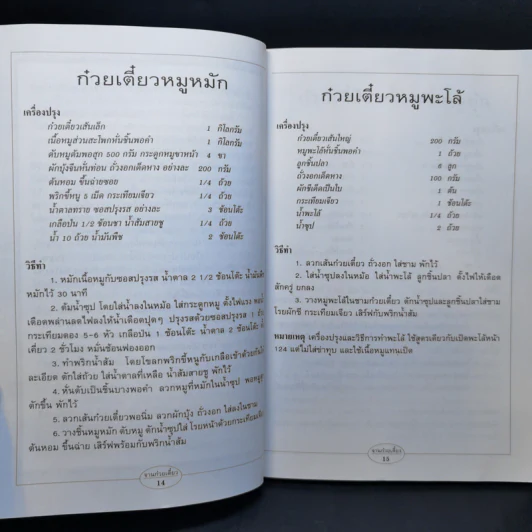 ก๋วยเตี๋ยวหมูหมัก
เครื่องปรุง
ก๋วยเตี๋ยวเส้นเล็ก 1 กิโลกรัม
เนื้อหมูส่วนสะโพกหั่นชิ้นพอคำ 1 กิโลกรัม
ตับหมูต้มพอสุก 500 กรัม กระดูกหมูขาหน้า 4 ขา
ผักบุ้งจีนหั่นท่อน ถั่วงอกเด็ดหาง อย่างละ 200 กรัม
ต้นหอม ขึ้นฉ่ายซอย 1/4 ถ้วย
พริกขี้หนู 5 เม็ด กระเทียมเจียว 1/4 ถ้วย
น้ำตาลทราย ซอสปรุงรส อย่างละ 3 ช้อนโต๊ะ
เกลือป่น 1/2 ช้อนชา น้ำส้มสายชู 1/4 ถ้วย
น้ำ 10 ถ้วย น้ำมันพืช 2 ช้อนโต๊ะ
วิธีทำ
1. หมักเนื้อหมูกับซอสปรุงรส น้ำตาล 2 1/2 ช้อนโต๊ะ น้ำมันพืช
หมักไว้ 30 นาที
2. ต้มน้ำซุป โดยใส่น้ำลงในหม้อ ใส่กระดูกหมู ตั้งไฟแรง พอ
เดือดพล่านลดไฟลงให้น้ำเดือดปุดๆ ปรุงรสด้วยซอสปรุงรส 1 ถ้วย
กระเทียมดอง 5-6 หัว เกลือป่น 1 ช้อนโต๊ะ น้ำตาล 2 ช้อนโต๊ะ
เคี่ยว 2 ชั่วโมง หมั่นช้อนฟองออก
3. ทำพริกน้ำส้ม โดยโขลกพริกขี้หนูกับเกลือเข้าด้วยกัน
ละเอียด ตักใส่ถ้วย ใส่น้ำตาลที่เหลือ น้ำส้มสายชู พักไว้
4. หั่นตับเป็นชิ้นบางพอคำ ลวกหมูที่หมักในน้ำซุป พอหมูสุก
ตักขึ้น พักไว้
5. ลวกเส้นก๋วยเตี๋ยวพอนิ่ม ลวกผักบุ้ง ถั่วงอก ใส่ลงในชาม
6. วางชิ้นหมูหมัก ตับหมู ตักน้ำซุปใส่ โรยหน้าด้วยกระเทียมเจียว
ต้นหอม ขึ้นฉ่าย เสิร์ฟพร้อมกับพริกน้ำส้ม
ชวนก๋วยเตี๋ยว
14
ก๋วยเตี๋ยวหมูพะโล้
เครื่องปรุง
ก๋วยเตี๋ยวเส้นใหญ่ 200 กรัม
หมูพะโล้หั่นชิ้นพอคำ 1 ถ้วย
ลูกชิ้นปลา 6 ลูก
ถั่วงอกเด็ดหาง 100 กรัม
ผักชีเด็ดเป็นใบ 1 ต้น
กระเทียมเจียว 1 ช้อนโต๊ะ
น้ำพะโล้ 1/4 ถ้วย
น้ำซุป 2 ถ้วย
วิธีทำ
1. ลวกเส้นก๋วยเตี๋ยว ถั่วงอก ใส่ชาม พักไว้
2. ใส่น้ำซุปลงในหม้อ ใส่น้ำพะโล้ ลูกชิ้นปลา ตั้งไฟให้เดือด
สักครู่ ยกลง
3. วางหมูพะโล้ในชามก๋วยเตี๋ยว ตักน้ำซุปและลูกชิ้นปลาใส่ชาม
โรยผักชี กระเทียมเจียว เสิร์ฟกับพริกน้ำส้ม
หมายเหตุ เครื่องปรุงและวิธีการทำพะโล้ ใช้สูตรเดียวกับเป็ดพะโล้หน้า
124 แต่ไม่ใส่ข่าทุบ และใช้เนื้อหมูแทนเป็ด
ชวนก๋วยเตี๋ยว
15